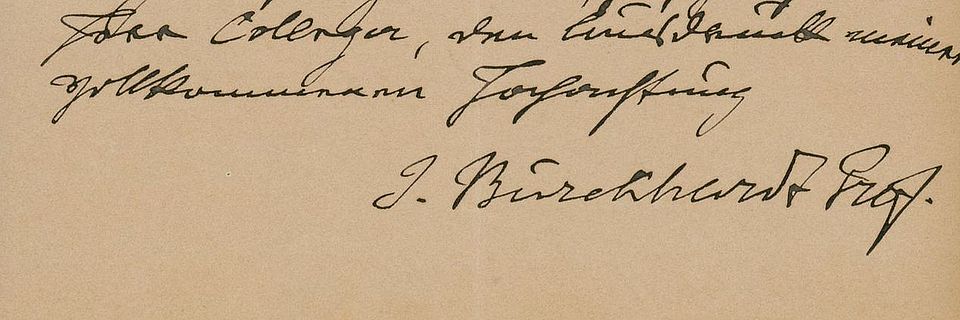 Herr College, den Ausdruck meiner
vollkommenen Hochachtung
J. Burckhardt Prof.